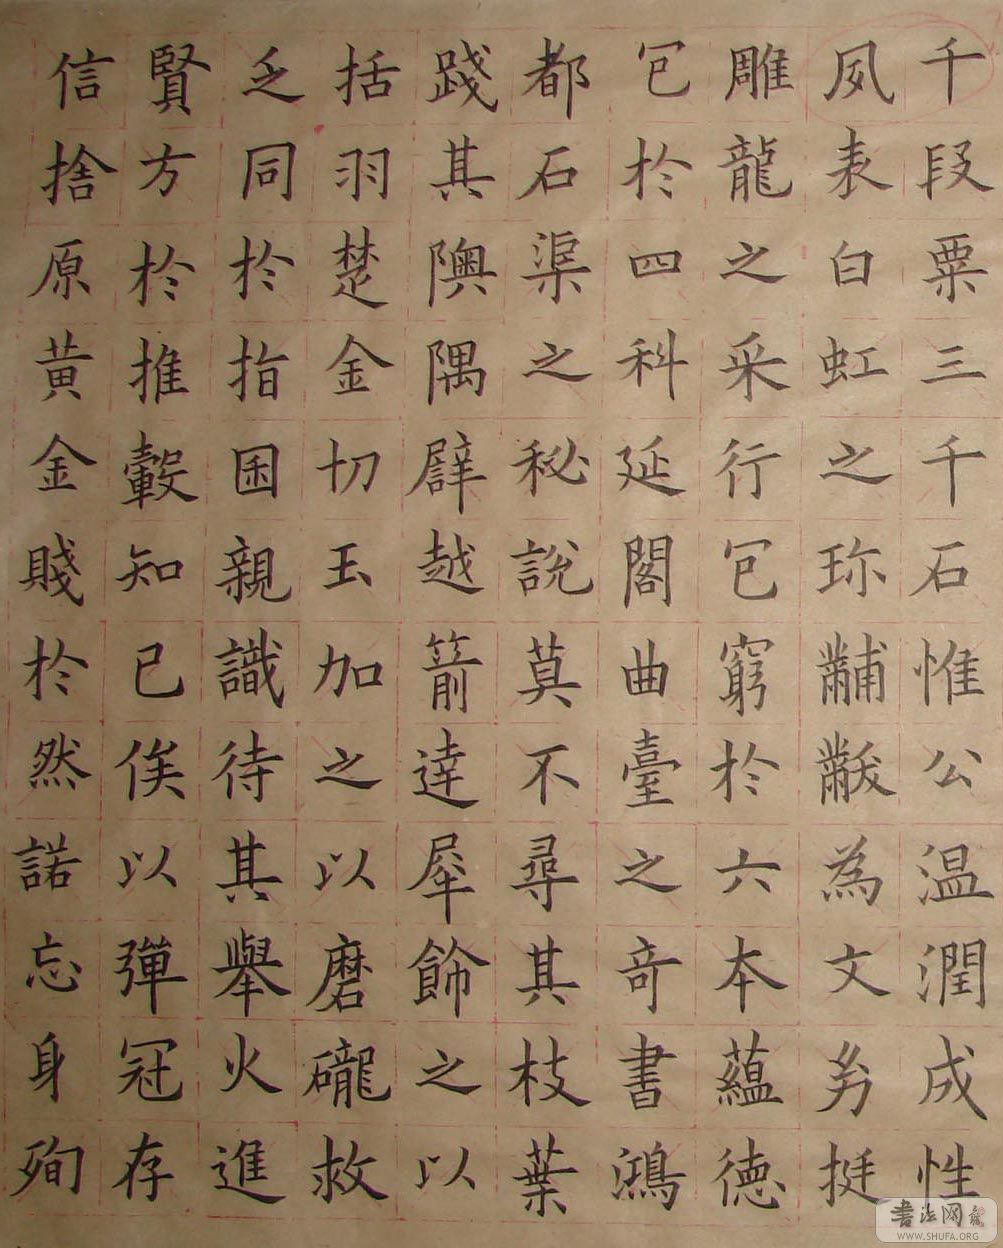 千段粟三千石惟公温潤成性
夙表白虹之珎黼黻為文㓜挺
雕龍之采行包窮於六本蘊德
包於四科延閣曲臺之奇書鴻
都石渠之秘說莫不尋其枝葉
踐其隩隅譬越箭達犀飾之以
括羽楚金切玉加之以磨礲救
乏同於指囷親識待其舉火進
賢方於推轂知己俟以彈冠存
信捨原黃金賤於然諾忘身殉
書法网
WWW.SHUFA.ORG